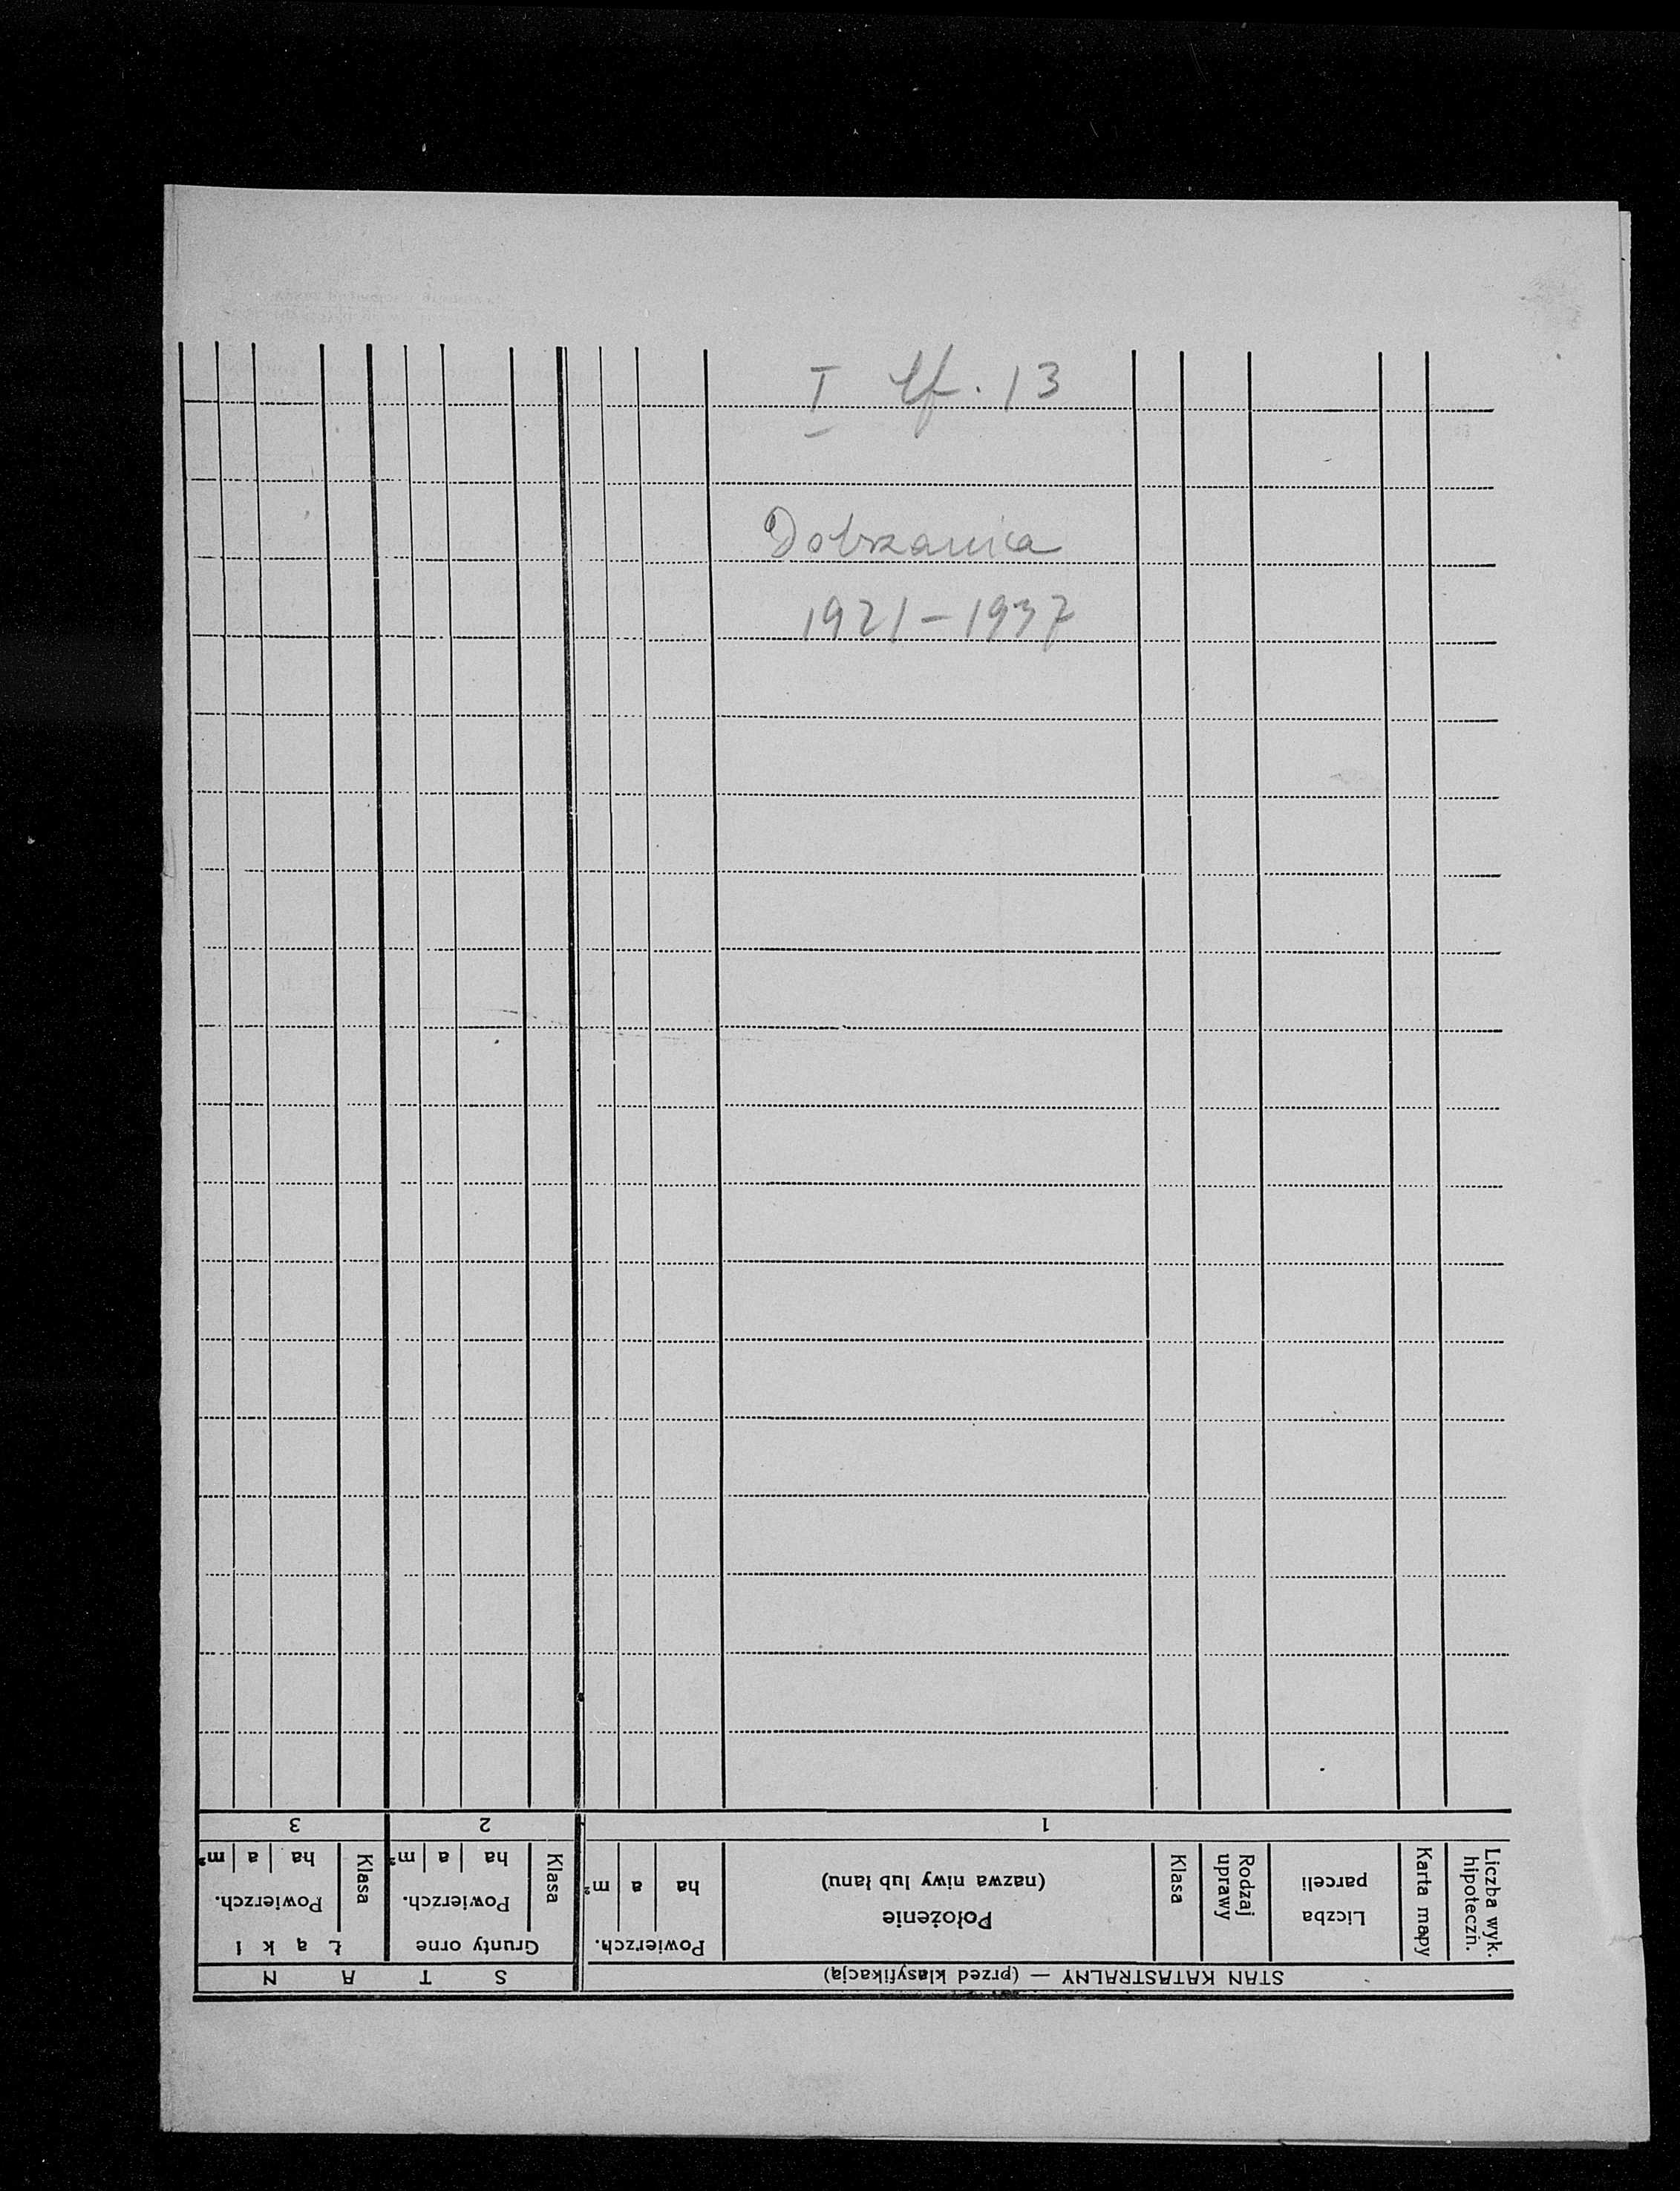 I lf. 13
Dobrzanica
1921-1937
STAN KATASTRALNY — (przed klasyfikacją)
S T A N
Liczba wyk. hipoteczn.
Karta mapy
Liczba parceli
Rodzaj uprawy
Klasa
Położenie
(nazwa niwy lub łanu)
Powierzch.
ha a m²
Grunty orne
Klasa
Powierzch.
ha a m²
Łąki
Klasa
Powierzch.
ha a m²
1 2 3